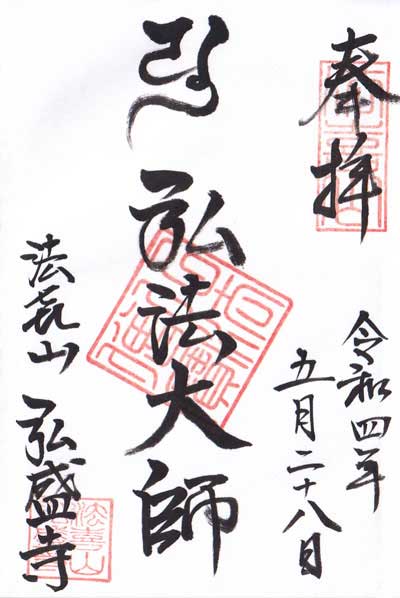 奉拝
令和四年
五月二十八日
弘法大師
法㐂山 弘盛寺
法喜山